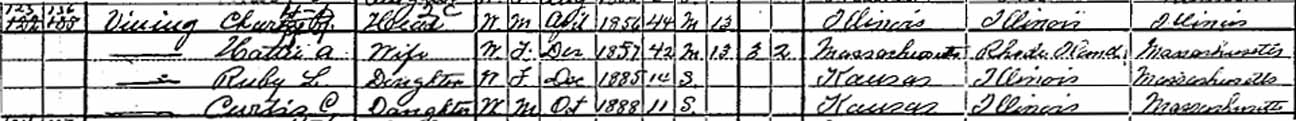 123 136 Vining Head W. M. April 1856 44 M 13 Illinois Illinois Illinois
Hattie A Wife W. F. Dec 1857 42 M 13 3 2 Massachusetts Rhode Island Massachusetts
Ruby L. Daughter W F. Dec 1885 14 S. Kansas Illinois Massachusetts
Curtis C. Daughter W. M Oct 1888 11 S. Kansas Illinois Massachusetts